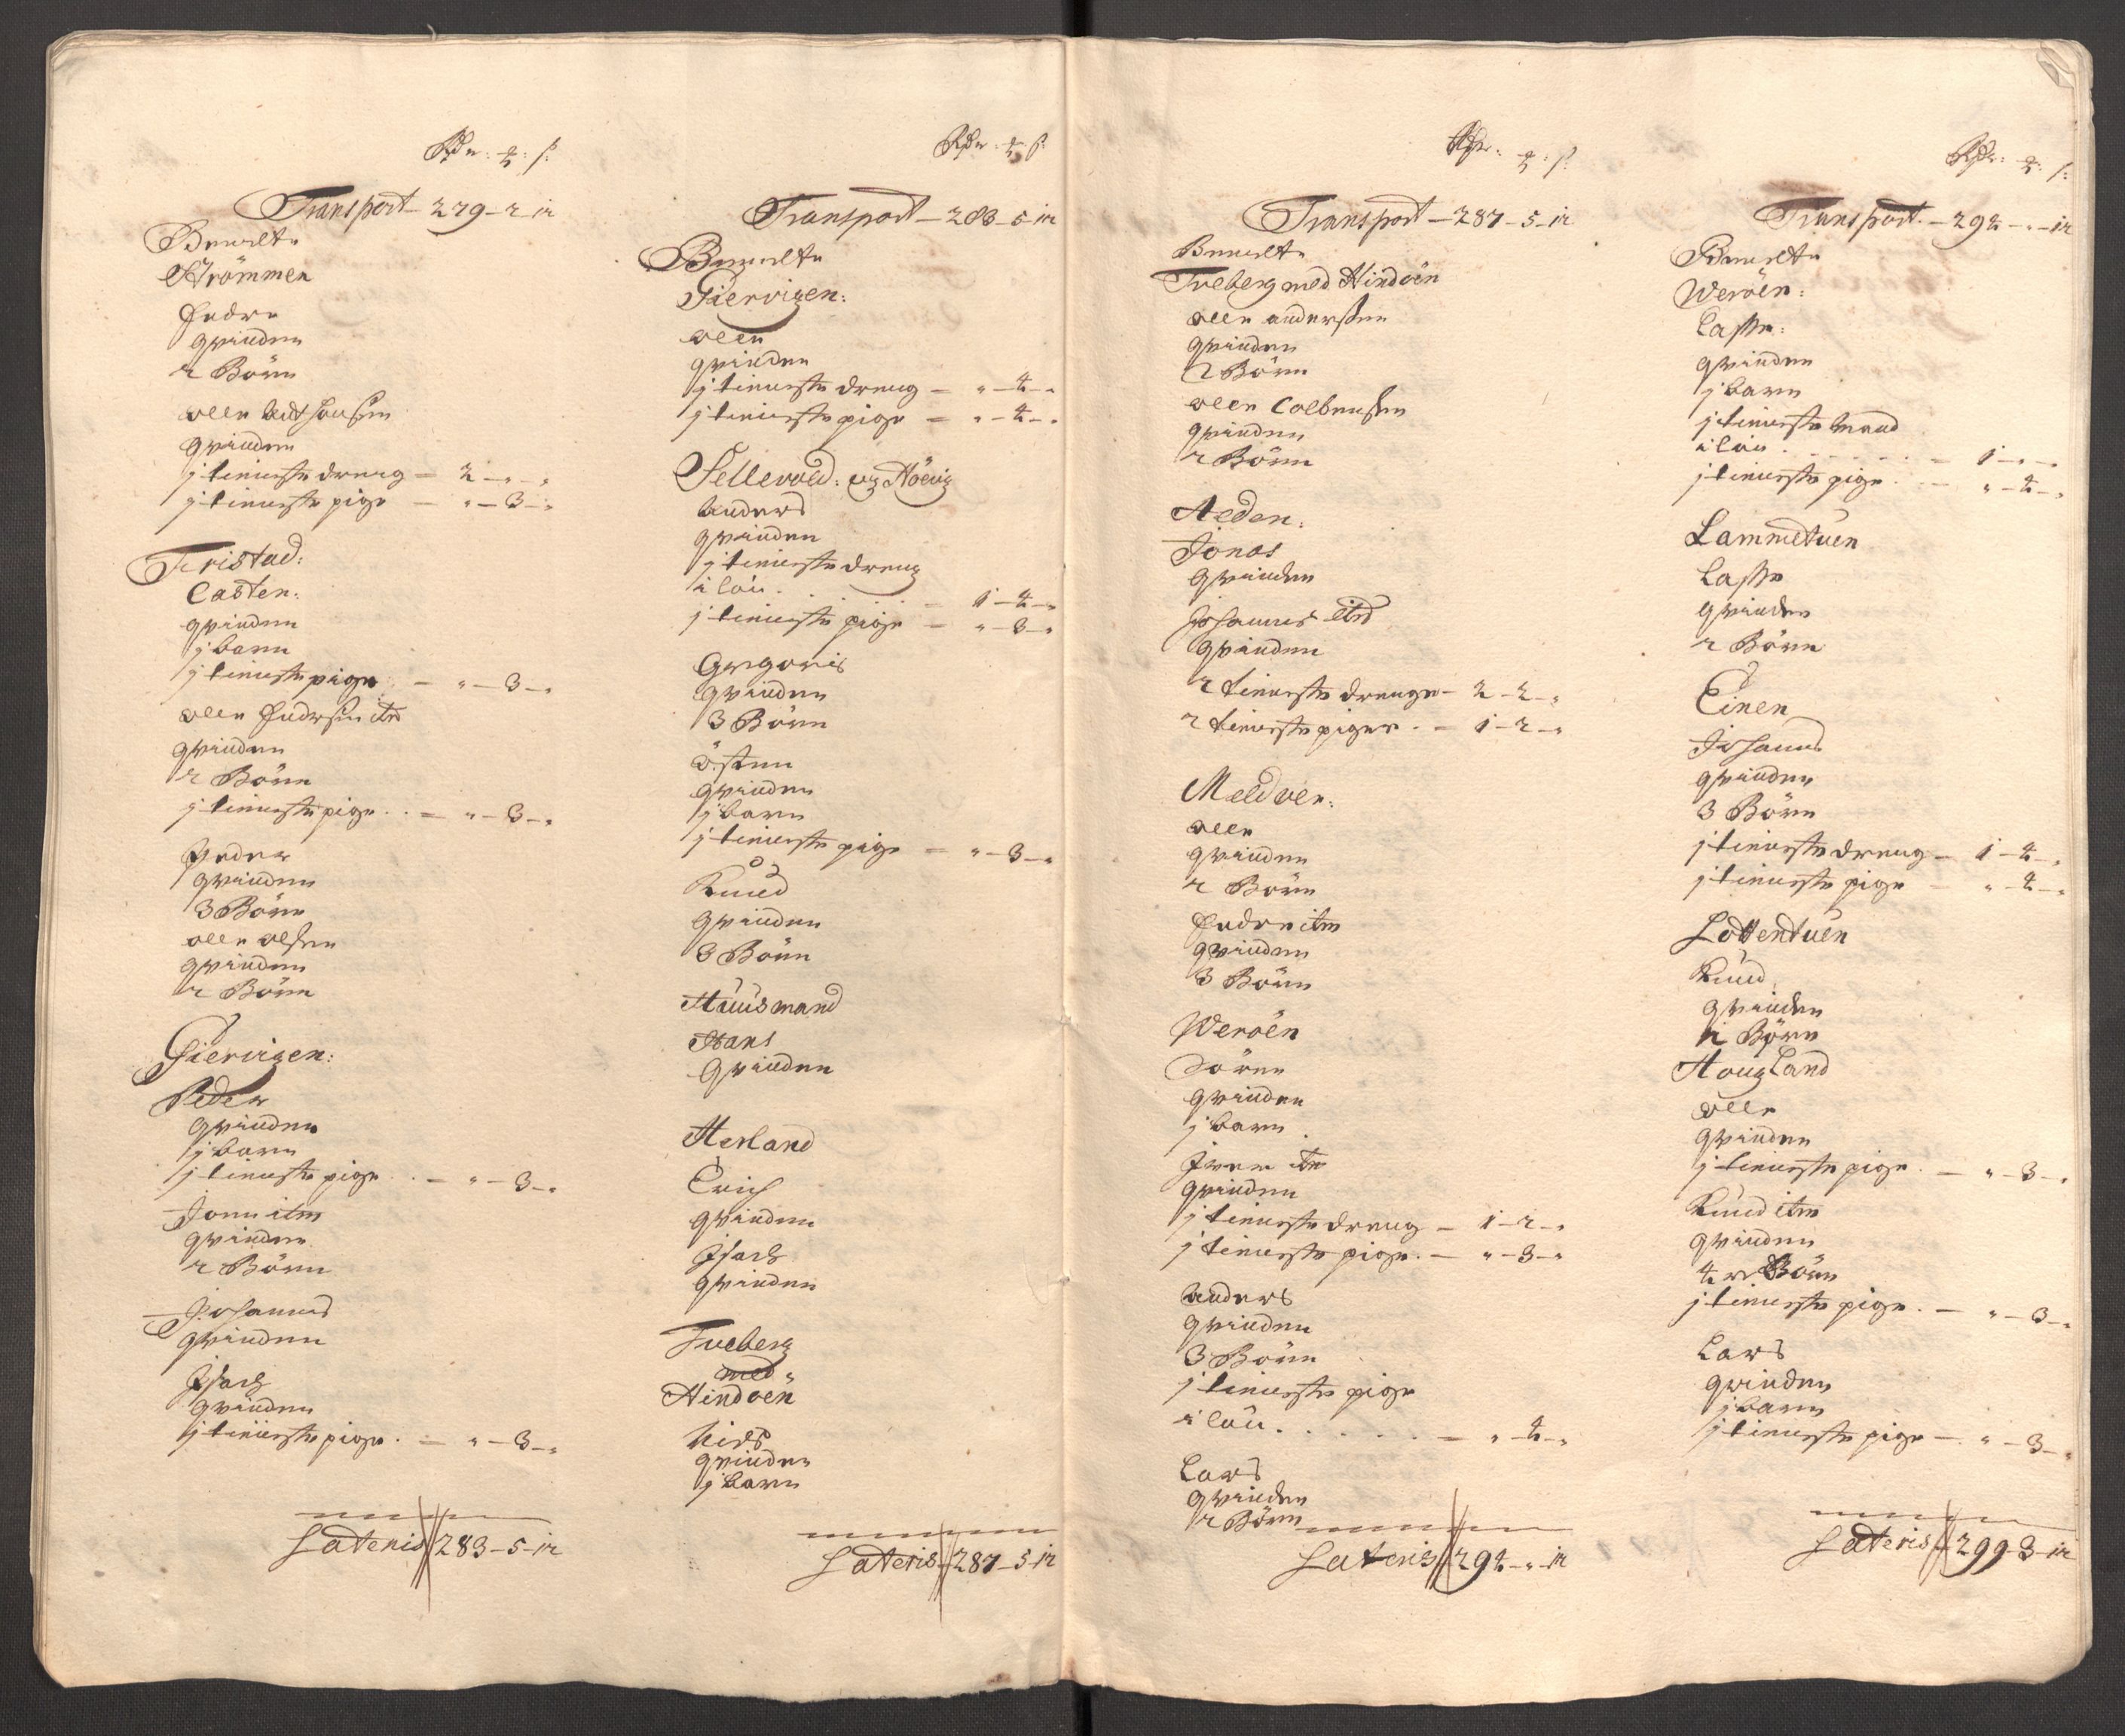 Rdr: ƶ: ß:
Transport – 279 – 2 – 12
Benefte
Strömmen
Endre
qvinden
2 Börn
olle
qvinden
j tienneste dreng – 2 – „ – „
j tienneste pige – „ – 3 – „
Tristad:
Casten:
qvinden
j barn
j tienneste pige – „ – 3 – „
olle Endresen itm
qvinden
2 Börn
j tienneste pige – „ – 3 – „
Peder
qvinden
3 Börn
olle olsen
qvinden
2 Börn
Giervigen:
Peder
qvinden
j barn
j tienneste pige – „ – 3 – „
Jonn itm
qvinden
2 Börn
Johannes
qvinden
Isach
qvinden
j tienneste pige – „ – 3 – „
Lateris 283 – 5 – 12
Rdr: ƶ: ß:
Transport – 283 – 5 – 12
Benefte
Giervigen:
olle
qvinden
j tienneste dreng – „ – 4 – „
j tienneste pige – „ – 4 – „
Sellevold: og Höevig
Anders
qvinden
j tienneste dreng
i lön – 1 – 4 – „
j tienneste pige – „ – 3 – „
Gregoris
qvinden
3 Börn
östen
qvinden
j barn
j tienneste pige – „ – 3 – „
Knud
qvinden
3 Börn
Huusmand
Hans
qvinden
Herland
Erich
qvinden
Isach
qvinden
Tveberg
med
Hindöen
Niels
qvinden
j barn
Lateris 287 – 5 – 12
Rdr: ƶ: ß:
Transport – 287 – 5 – 12
Benefte
Tveberg med Hindöen
olle andersen
qvinden
2 Börn
olle Colbensen
qvinden
2 Börn
Heden:
Jonas
qvinden
Johannes itm
qvinden
2 tienneste drenge – 2 – 2 – „
2 tienneste piger – 1 – 2 – „
Mældoen:
olle
qvinden
2 Börn
Endre itm
qvinden
3 Börn
Weröen
Sören
qvinden
j barn
Iver itm
qvinden
j tienneste dreng – 1 – 2 – „
j tienneste pige – „ – 3 – „
Anders
qvinden
3 Börn
j tienneste pige
i lön – „ – 4 – „
Lars
qvinden
2 Börn
Lateris 292 – „ – 12
Rdr: ƶ: ß:
Transport – 292 – „ – 12
Benefte
Weröen:
Lasse:
qvinden
j barn
j tienneste mand
i lön – 1 – „ – „
j tienneste pige – „ – 4 – „
Lammetuen
Lasse
qvinden
2 Börn
Einen
Johannes
qvinden
3 Börn
j tienneste dreng – 1 – 4 – „
j tienneste pige – „ – 4 – „
Lottentuen
Knud
qvinden
2 Börn
Hougland
olle
qvinden
j tienneste pige – „ – 3 – „
Knud itm
qvinden
4 Börn
j tienneste pige – „ – 3 – „
Lars
qvinden
j barn
j tienneste pige – „ – 3 – „
Lateris 299 – 3 – 12